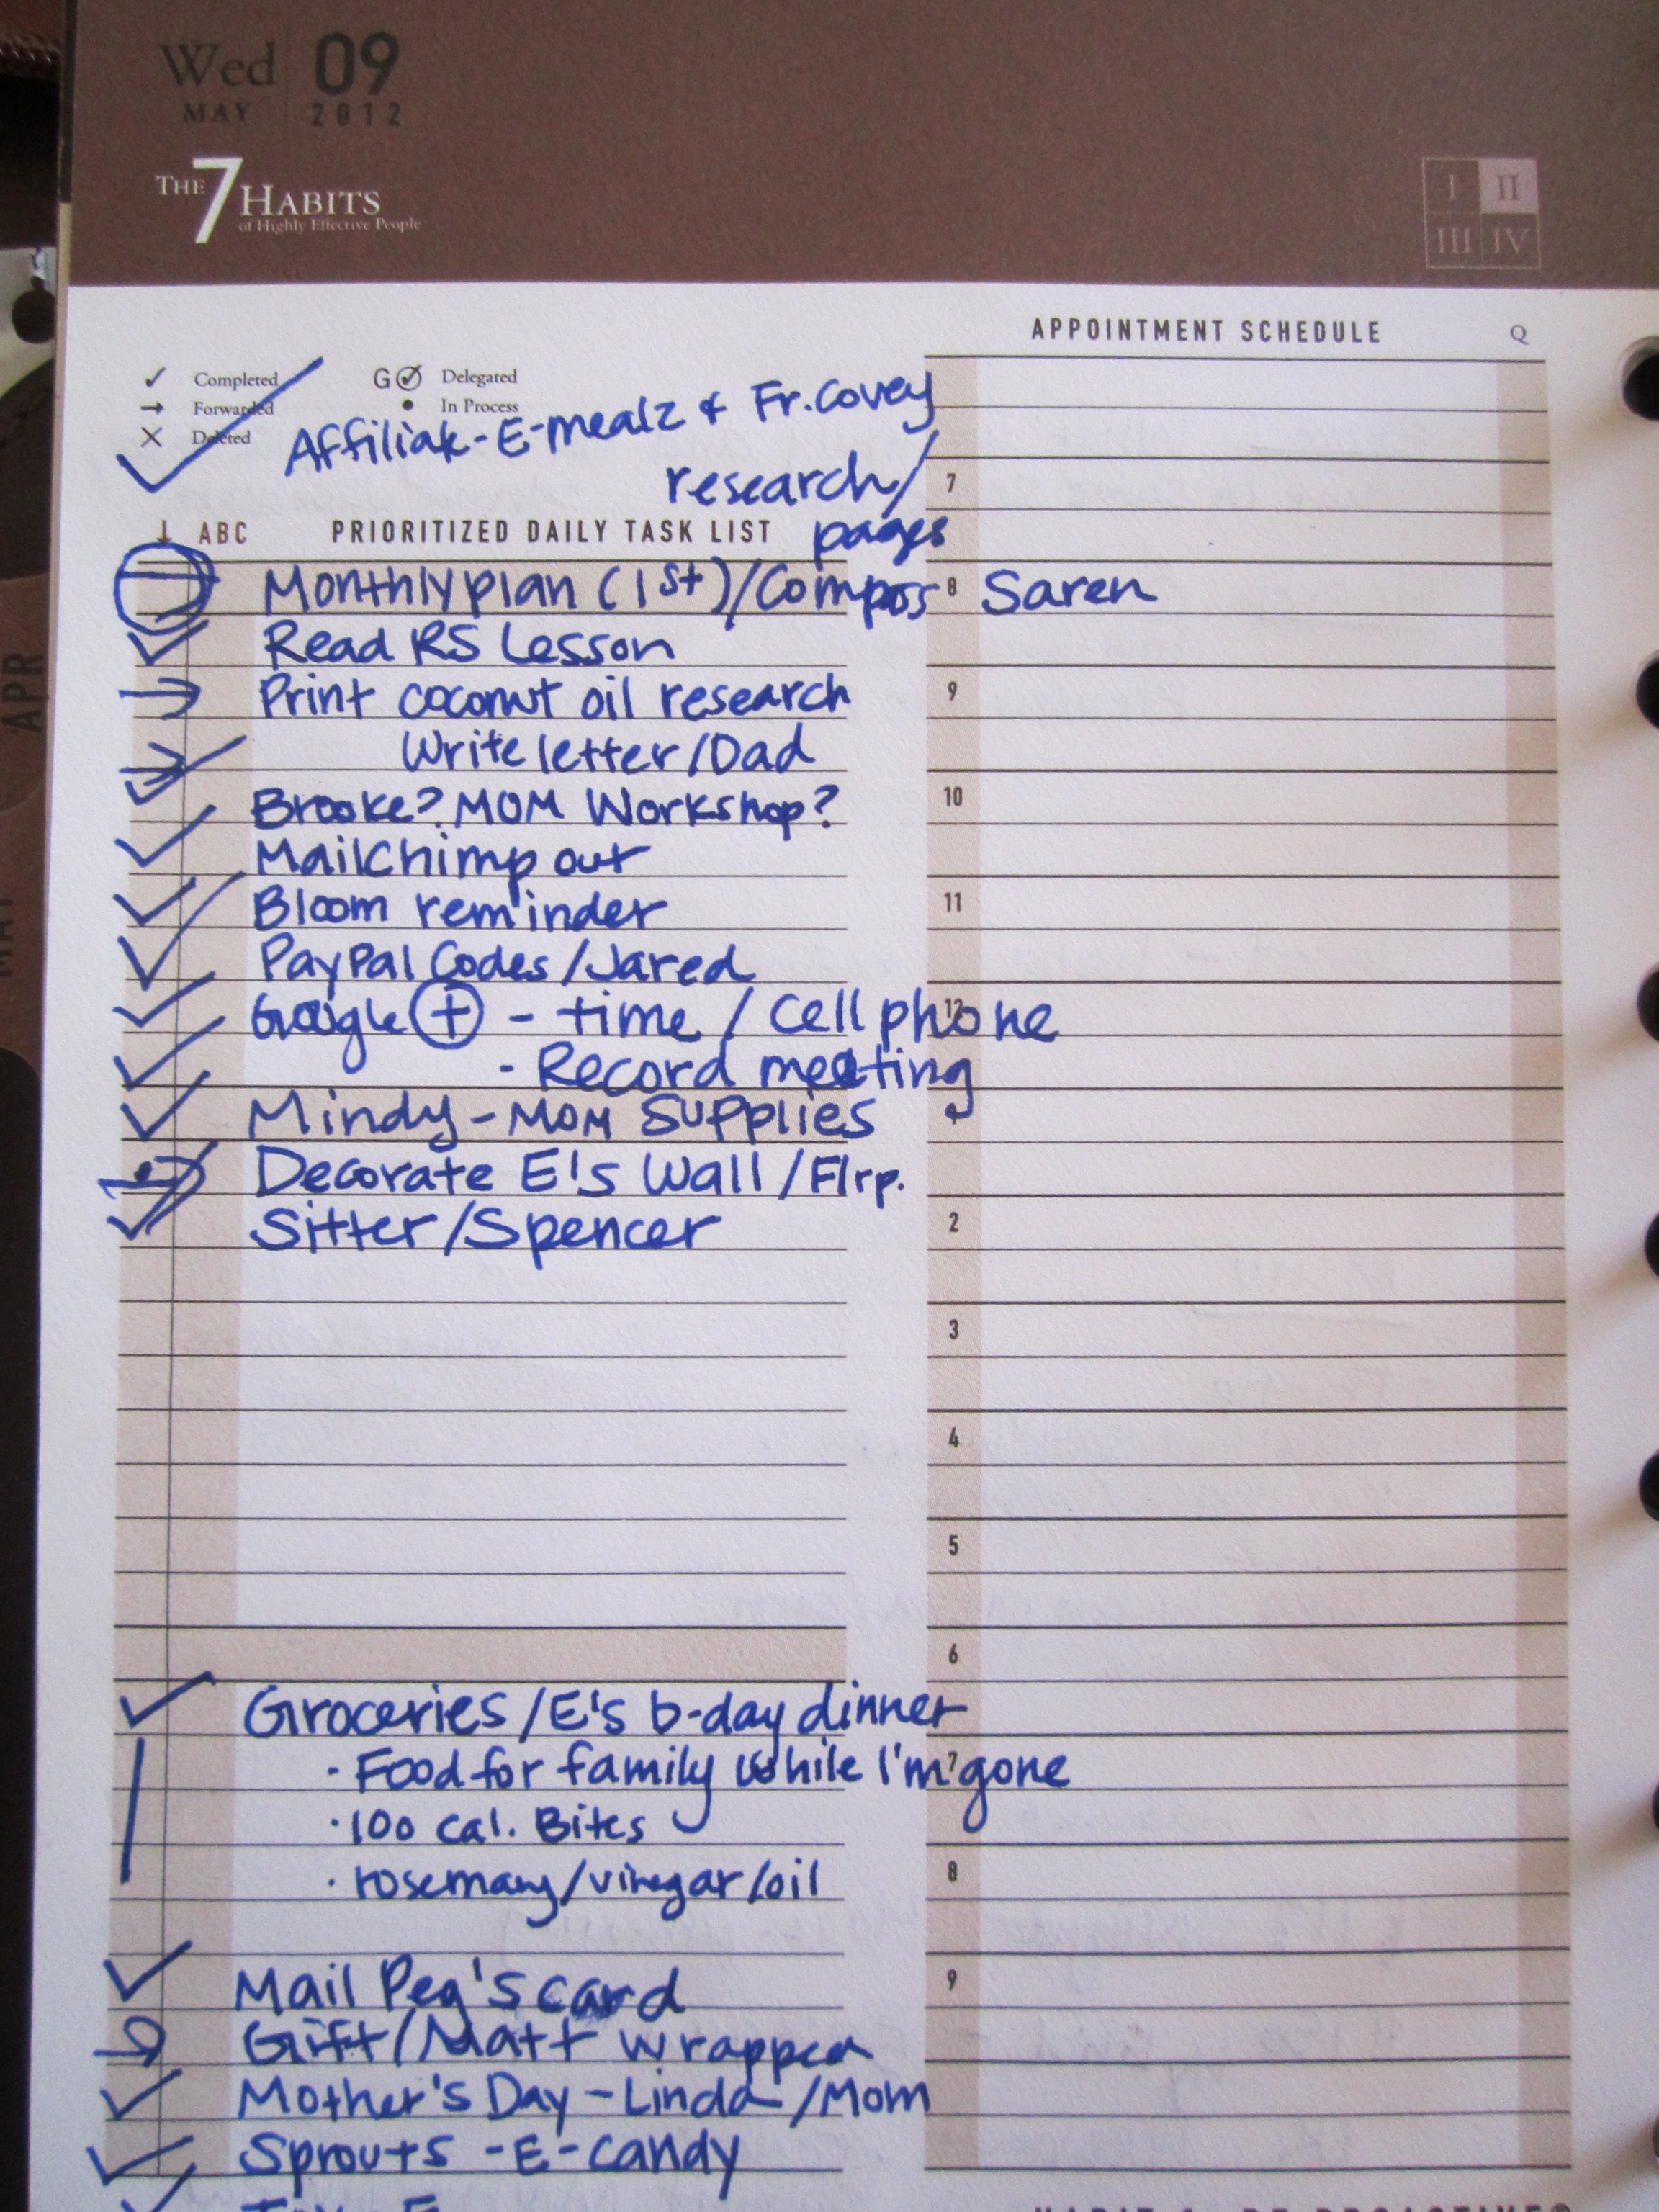 Wed 09
MAY 2012
THE 7 HABITS
of Highly Effective People
I II
III IV
APPOINTMENT SCHEDULE Q
✓ Completed G Delegated
→ Forwarded • In Process
X Deleted
Affiliate-E-mealz & Fr.Covey
research/
pages
↓ ABC PRIORITIZED DAILY TASK LIST
Monthly plan (1st)/Compass
Read RS Lesson
Print coconut oil research
Write letter/Dad
Brooke? MOM Workshop?
MailChimp out
Bloom reminder
PayPal Codes/Jared
Google + - time / Cell phone
- Record meeting
Mindy-MOM Supplies
Decorate E's Wall/Flrp.
Sitter/Spencer
Groceries/E's b-day dinner
- Food for family while I'm gone
· 100 cal. Bites
· rosemary/vinegar/oil
Mail Peg's card
Gift/Matt wrapped
Mother's Day-Linda/Mom
Sprouts -E-candy
7
8 Saren
9
10
11
12
1
2
3
4
5
6
7
8
9
APR
MAY